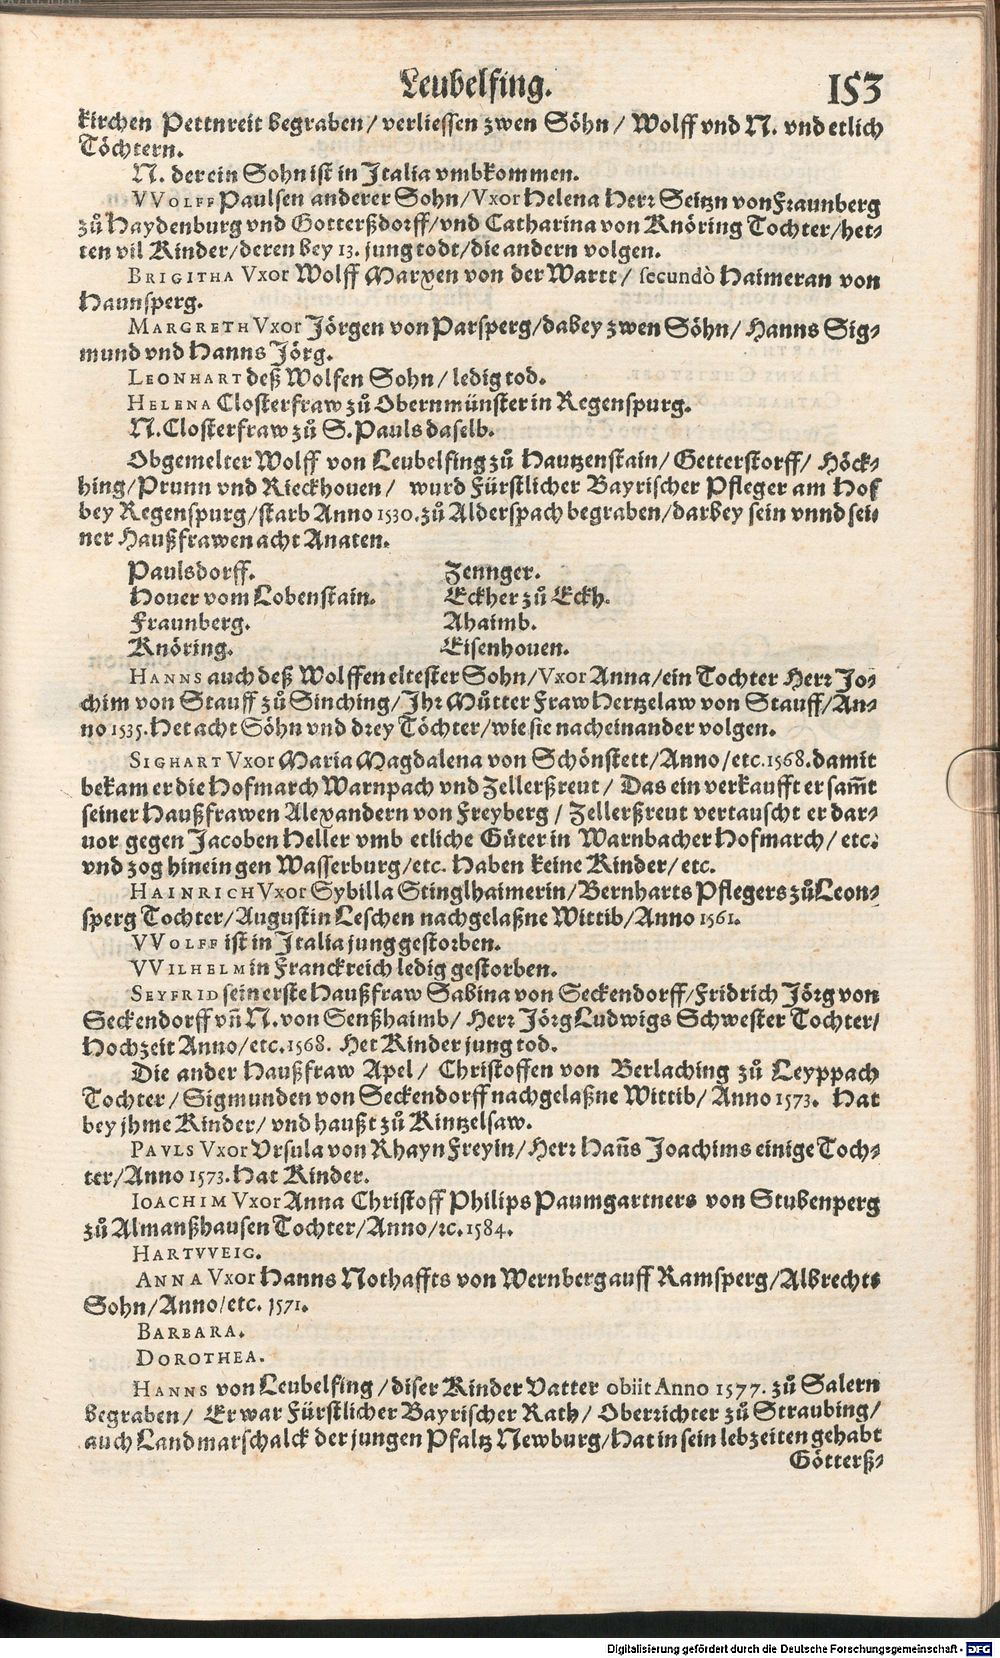 Leubelfing. 153
kirchen Pettnreit begraben/ verliessen zwen Söhn/ Wolff vnd N. vnd etlich
Töchtern.
N. der ein Sohn ist in Italia vmbkommen.
VVOLFF Paulsen anderer Sohn/ Vxor Helena Herr Seitzn von Fraunberg
zů Haydenburg vnd Gotterßdorff/ vnd Catharina von Knöring Tochter/ het-
ten vil Kinder/ deren bey 13. jung todt/ die andern volgen.
BRIGITHA Vxor Wolff Marxen von der Wartt/ secundò Haimeran von
Haunsperg.
MARGRETH Vxor Jörgen von Parsperg/ dabey zwen Söhn/ Hanns Sig-
mund vnd Hanns Jörg.
LEONHART deß Wolfen Sohn/ ledig tod.
HELENA Closterfraw zů Obernmünster in Regenspurg.
N. Closterfraw zů S. Pauls daselb.
Obgemelter Wolff von Leubelfing zů Hautzenstain/ Getterstorff/ Höck-
hing/ Prunn vnd Rieckhouen/ wurd Fürstlicher Bayrischer Pfleger am Hof
bey Regenspurg/ starb Anno 1530. zů Alderspach begraben/ darbey sein vnnd sei-
ner Haußfrawen acht Anaten.
Paulsdorff. Zennger.
Houer vom Lobenstain. Eckher zů Eckh.
Fraunberg. Ahaimb.
Knöring. Eisenhouen.
HANNS auch deß Wolffen eltester Sohn/ Vxor Anna/ ein Tochter Herr Jo-
chim von Stauff zů Sinching/ Ihr Můtter Fraw Hertzelaw von Stauff/ An-
no 1535. Het acht Söhn vnd drey Töchter/ wie sie nacheinander volgen.
SIGHART Vxor Maria Magdalena von Schönstett/ Anno/ etc. 1568. damit
bekam er die Hofmarch Warnpach vnd Zellerßreut/ Das ein verkaufft er sam̃t
seiner Haußfrawen Alexandern von Freyberg/ Zellerßreut vertauscht er dar-
uor gegen Jacoben Heller vmb etliche Güter in Warnbacher Hofmarch/ etc.
vnd zog hinein gen Wasserburg/ etc. Haben keine Kinder/ etc.
HAINRICH Vxor Sybilla Stinglhaimerin/ Bernharts Pflegers zů Leon-
sperg Tochter/ Augustin Leschen nachgelaßne Wittib/ Anno 1561.
VVOLFF ist in Italia jung gestorben.
VVILHELM in Franckreich ledig gestorben.
SEYFRID sein erste Haußfraw Sabina von Seckendorff/ Fridrich Jörg von
Seckendorff vn̄ N. von Senßhaimb/ Herr Jörg Ludwigs Schwester Tochter/
Hochzeit Anno/ etc. 1568. Het Kinder jung tod.
Die ander Haußfraw Apel/ Christoffen von Berlaching zů Leyppach
Tochter/ Sigmunden von Seckendorff nachgelaßne Wittib/ Anno 1573. Hat
bey jhme Kinder/ vnd haußt zů Kintzelsaw.
PAVLS Vxor Vrsula von Rhayn Freyin/ Herr Han̄s Joachims einige Toch-
ter/ Anno 1573. Hat Kinder.
IOACHIM Vxor Anna Christoff Philips Paumgartners von Stubenperg
zů Almanßhausen Tochter/ Anno/ ꝛc. 1584.
HARTVVEIG.
ANNA Vxor Hanns Nothaffts von Wernberg auff Ramsperg/ Albrechts
Sohn/ Anno/ etc. 1571.
BARBARA.
DOROTHEA.
HANNS von Leubelfing/ diser Kinder Vatter obiit Anno 1577. zů Salern
begraben/ Er war Fürstlicher Bayrischer Rath/ Oberrichter zů Straubing/
auch Landmarschalck der jungen Pfaltz Newburg/ Hat in sein lebzeiten gehabt
Götterß-
Digitalisierung gefördert durch die Deutsche Forschungsgemeinschaft - DFG